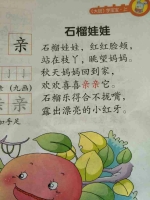 亲
石榴娃娃
石榴娃娃，红红脸颊，
站在枝丫，眺望妈妈。
秋天妈妈回到家，
欢欢喜喜亲亲它。
石榴乐得合不拢嘴，
露出漂亮的小红牙。
（九画）
亲
如手足